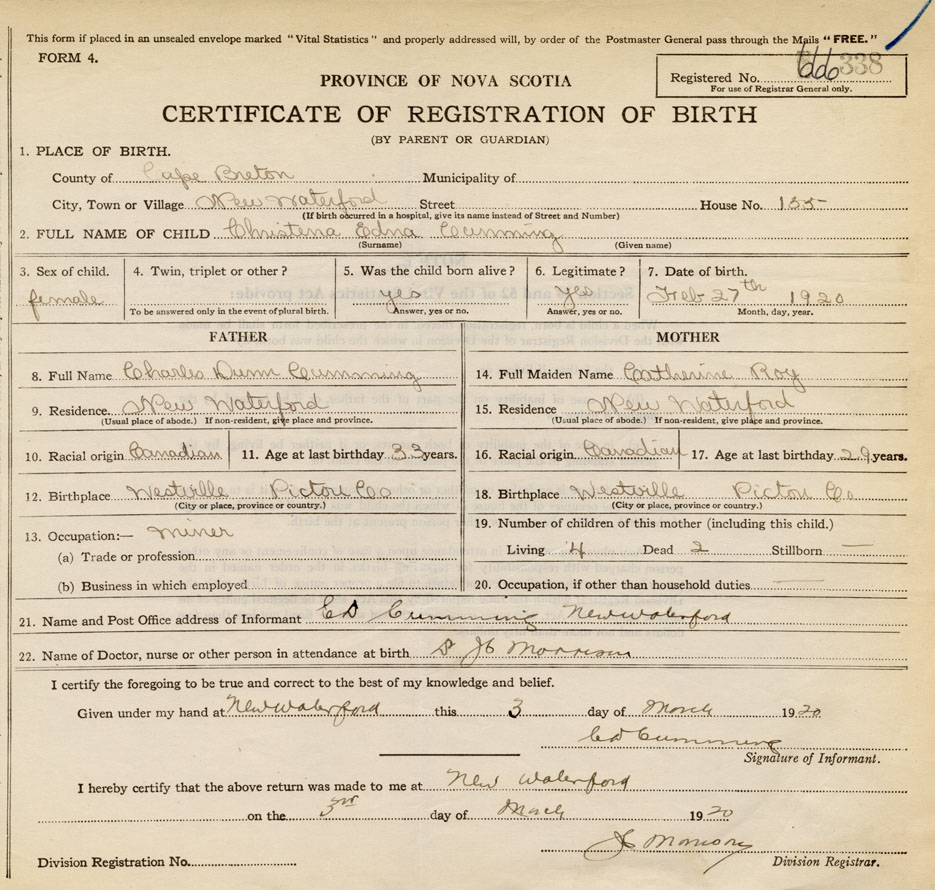 This form if placed in an unsealed envelope marked "Vital Statistics" and properly addressed will, by order of the Postmaster General pass through the Mails "FREE."
FORM 4.
666 338
Registered No.
For use of Registrar General only.
PROVINCE OF NOVA SCOTIA
CERTIFICATE OF REGISTRATION OF BIRTH
(BY PARENT OR GUARDIAN)
1. PLACE OF BIRTH.
County of Cape Breton Municipality of
City, Town or Village New Waterford Street House No. 155
(If birth occurred in a hospital, give its name instead of Street and Number)
2. FULL NAME OF CHILD Christena Edna Cumming
(Surname) (Given name)
3. Sex of child. 4. Twin, triplet or other? 5. Was the child born alive? 6. Legitimate? 7. Date of birth.
female yes yes Feb 27th 1920
To be answered only in the event of plural birth. Answer, yes or no. Answer, yes or no. Month, day, year.
FATHER MOTHER
8. Full Name Charles Dunn Cumming 14. Full Maiden Name Catherine Roy
9. Residence. New Waterford 15. Residence New Waterford
(Usual place of abode.) If non-resident, give place and province. (Usual place of abode.) If non-resident, give place and province.
10. Racial origin Canadian 11. Age at last birthday 33 years. 16. Racial origin Canadian 17. Age at last birthday 29 years.
12. Birthplace Westville Pictou Co 18. Birthplace Westville Pictou Co
(City or place, province or country.) (City or place, province or country.)
13. Occupation:— miner 19. Number of children of this mother (including this child.)
(a) Trade or profession Living 4 Dead 2 Stillborn —
(b) Business in which employed 20. Occupation, if other than household duties. —
21. Name and Post Office address of Informant CD Cumming New Waterford
22. Name of Doctor, nurse or other person in attendance at birth Morrison
I certify the foregoing to be true and correct to the best of my knowledge and belief.
Given under my hand at New Waterford this 3 day of March 1920
CD Cumming
Signature of Informant.
I hereby certify that the above return was made to me at New Waterford
on the 3rd day of March 1920
Morrison
Division Registration No. Division Registrar.